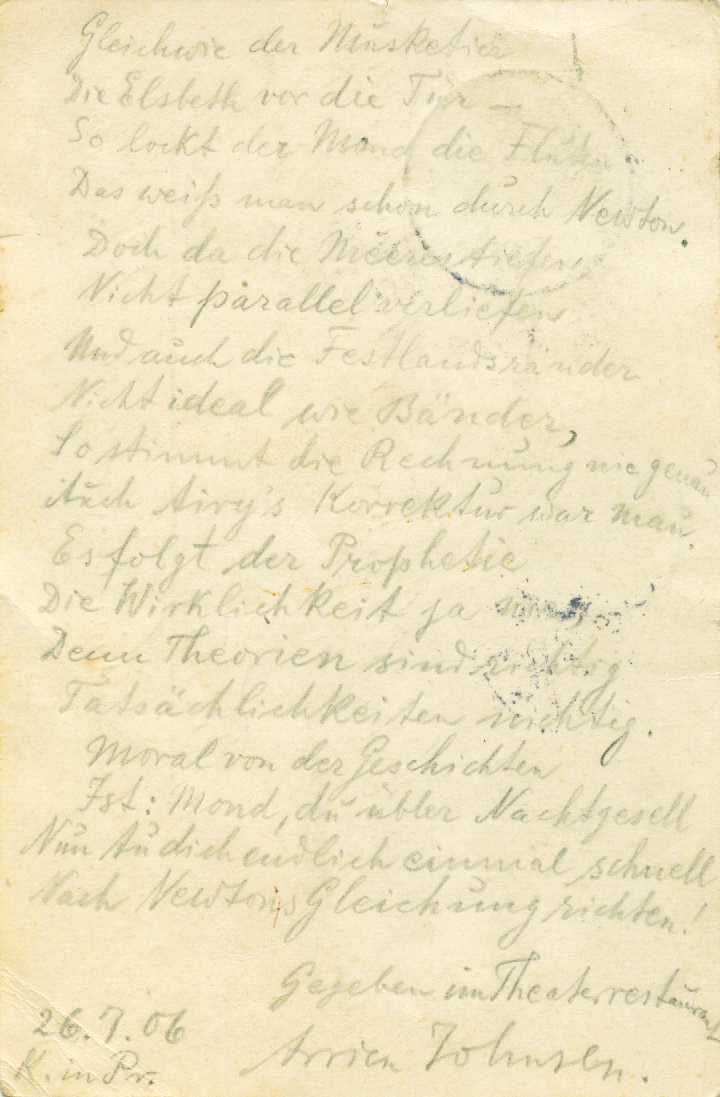 Gleichwie der Musketier
Die Elsbeth vor die Tür –
So lockt der Mond die Fluten.
Das weiß man schon durch Newton.
Doch da die Meerestiefen
Nicht parallel verliefen
Und auch die Festlandsränder
Nicht ideal wie Bänder,
So stimmt die Rechnung nie genau
Auch Airy's Korrektur war mau.
Es folgt der Prophetie
Die Wirklichkeit ja nie,
Denn Theorien sind richtig
Tatsächlichkeiten nichtig.
Moral von der Geschichten
Ist: Mond, du übler Nachtgesell
Nun tu dich endlich einmal schnell
Nach Newtons Gleichung richten!
Gegeben im Theaterrestaurant
26.7.06
Arrien Johnsen.
K. in Pr.